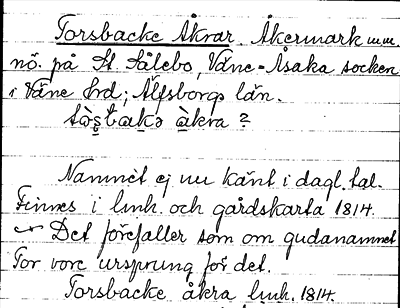 Torsbacke Åkrar. Åkermark m.m.
nö. på St Sålebo, Väne-Åsaka socken
i Väne hrd; Älfsborgs län.
àkra?
Namnet ej nu känt i dagl. tal.
Finnes i lmh. och gårdskarta 1814.
Det förefaller som om gudanamnet
Tor vore ursprung för det.
Torsbacke åkra lmh. 1814.